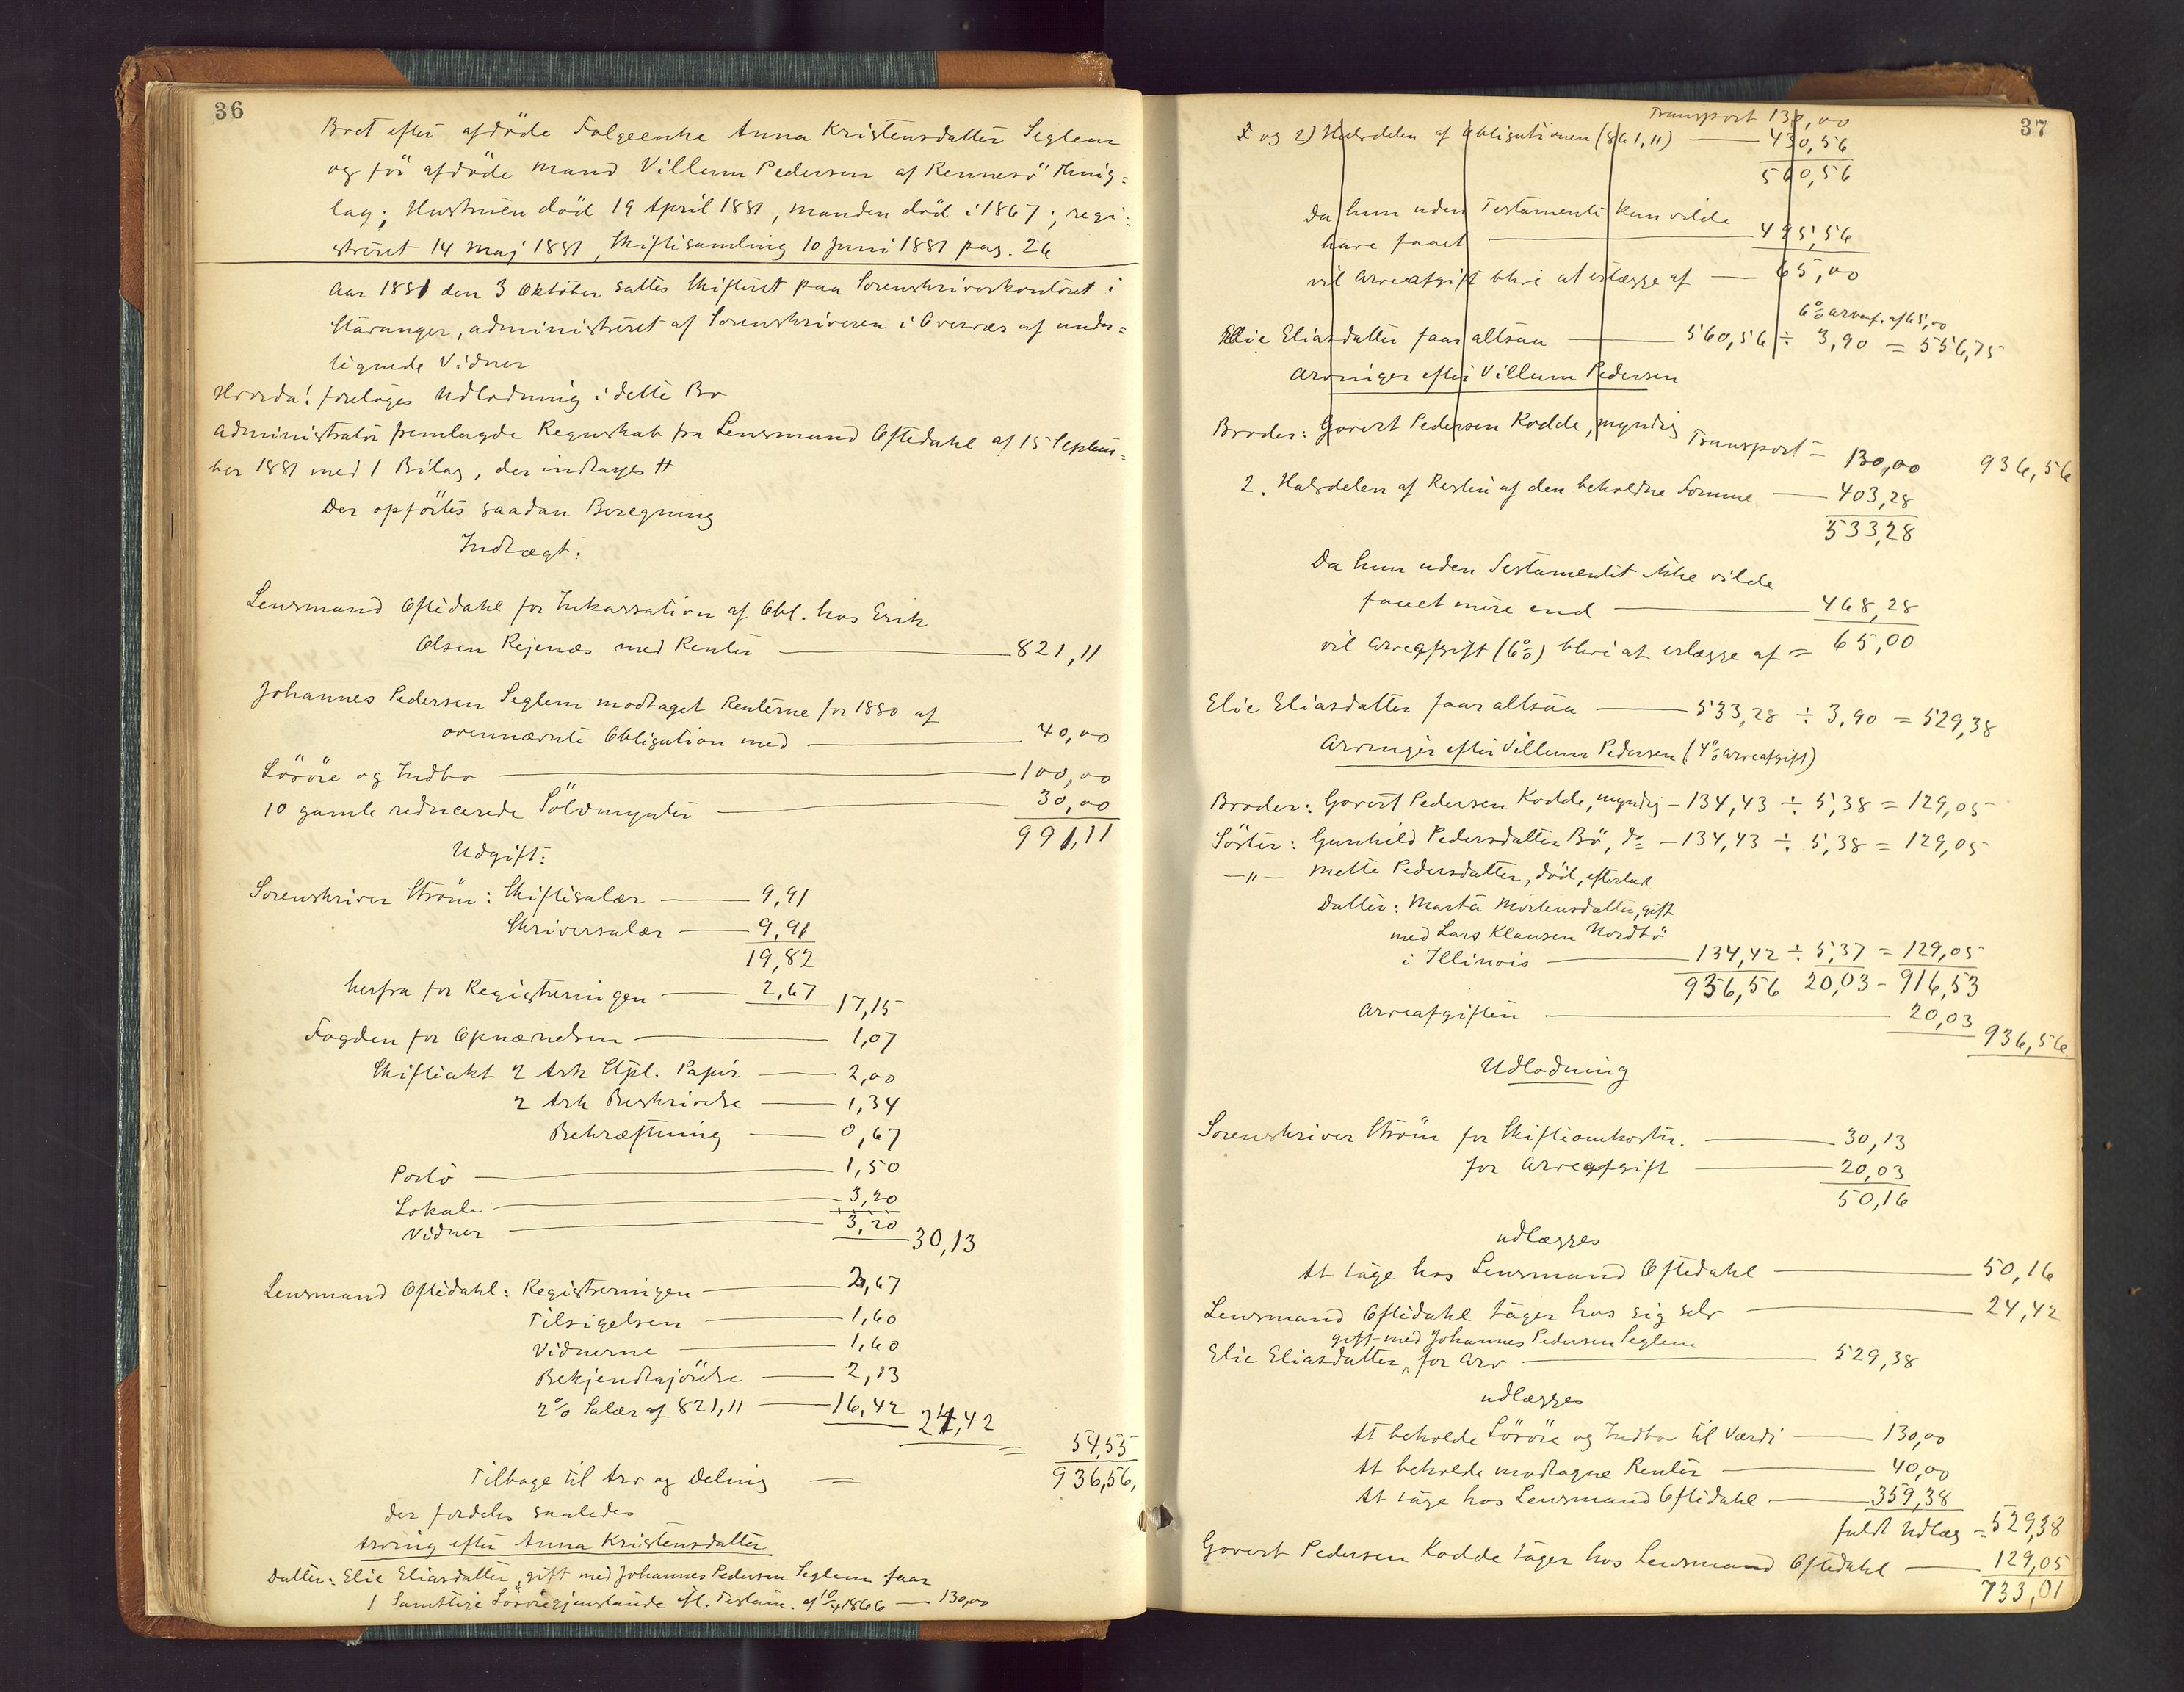 36
Boet efter afdöde Folgeenke Anna Kristensdatter Seglem
og för afdöde Mand Villum Pedersen af Rennesö Thing=
lag; Hustruen död 19 April 1881, Manden död i 1867; regi=
streret 14 Maj 1881, Skiftesamling 10 Juni 1881 pag. 26
Aar 1881 den 3 Oktober sattes Skifteret paa Sorenskriverkontoret i
Stavanger, administreret af Sorenskriveren i Overvær af under=
tegnede Vidner
Hvorda! foretoges Udlodning i dette Bo
Administrator fremlagde Regnskab fra Lensmand Oftedahl af 15 Septem=
ber 1881 med 1 Bilag, der indtages H
Der opförtes saadan Beregning
Indtægt:
Lensmand Oftedahl for Inkassation af Obl. hos Erik
Olsen Rejenæs med Renter — 821,11
Johannes Pedersen Seglem modtaget Renterne for 1880 af
ovennævnte Obligation med — 40,00
Lösöre og Indbo — 100,00
10 gamle reducerede Sölvmynter — 30,00
991,11
Udgift:
Sorenskriver Ström: Skiftesalær — 9,91
Skriversalær — 9,91
19,82
herfra for Registreringen — 2,67 17,15
Fogden for Opnævnelsen — 1,07
Skifteakt 2 Ark Stpl. Papir — 2,00
2 Ark Beskrivelse — 1,34
Bekræftning — 0,67
Porto — 1,50
Lokale — 3,20
Vidner — 3,20 30,13
Lensmand Oftedahl: Registreringen — 2,67
Tilsigelsen — 1,60
Vidnerne — 1,60
Bekjendtgjörelse — 2,13
2% Salær af 821,11 — 16,42 24,42
= 54,55
Tilbage til Arv og Deling = 936,56,
der fordeles saaledes
Arving efter Anna Kristensdatter
Datter: Elie Eliasdatter, gift med Johannes Pedersen Seglem faar
1 Samtlige Lösöregjenstande efl. Testam. af 10/4 1866 — 130,00
37
Transport 130,00
1 og 2) Halvdelen af Obligationen (861,11) — 430,56
560,56
Da hun uden Testamente kun vilde
have faaet — 495,56
vil Arveafgift blive at erlægge af — 65,00
6% arveaf. af 65,00
Elie Eliasdatter faar altsaa — 560,56 ÷ 3,90 = 556,75
Arvinger efter Villum Pedersen
Broder: Govert Pedersen Kodde, myndig
Transport — 130,00 936,56
2. Halvdelen af Resten af den beholdne Somme — 403,28
533,28
Da hun uden Testamentet ikke vilde
faaet mere end — 468,28
vil Arveafgift (6%) blive at erlægge af = 65,00
Elie Eliasdatter faar altsaa — 533,28 ÷ 3,90 = 529,38
Arvinger efter Villum Pedersen (4% Arveafgift)
Broder: Govert Pedersen Kodde, myndig — 134,43 ÷ 5,38 = 129,05
Söster: Gunhild Pedersdatter Bö, do — 134,43 ÷ 5,38 = 129,05
—"— Mette Pedersdatter, död, efterladt
Datter: Marta Mortensdatter, gift
med Lars Klausen Nordbö
i Illinois — 134,42 ÷ 5,37 = 129,05
936,56 20,03 - 916,53
Arveafgiften — 20,03
936,56
Udlodning
Sorenskriver Ström for Skifteomkostn. — 30,13
for Arveafgift — 20,03
50,16
udlægges
At tage hos Lensmand Oftedahl — 50,16
Lensmand Oftedahl tager hos sig selv — 24,42
gift med Johannes Pedersen Seglem
Elie Eliasdatter, for Arv — 529,38
udlægges
At beholde Lösöre og Indbo til Værdi — 130,00
At beholde modtagne Renter — 40,00
At tage hos Lensmand Oftedahl — 359,38
fuldt Udlæg = 529,38
Govert Pedersen Kodde tager hos Lensmand Oftedahl — 129,05
733,01